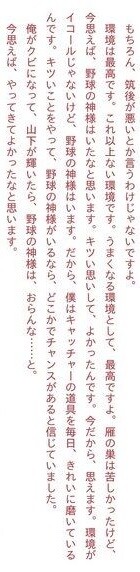 もちろん、筑後が悪いとか言うわけじゃないですよ。
環境は最高です。これ以上ない環境です。うまくなる環境として、最高ですよ。雁の巣は苦しかったけど、
今思えば、野球の神様はいたなと思います。キツい思いして、よかったんです。今だから、思えます。環境が
イコールじゃないけど、野球の神様はいます。だから、僕はキャッチャーの道具を毎日、きれいに磨いている
んです。キツいことをやって、野球の神様がいるなら、どこかでチャンスがあると信じていました。
俺がクビになって、山下が輝いたら、野球の神様は、おらんな……と。
今思えば、やってきてよかったなと思います。